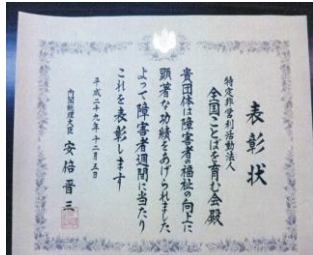 表彰状
特定非営利活動法人
全国ことばを育む会殿
貴団体は障害者の福祉の向上に
顕著な功績をあげられました
よって障害者週間に当たり
これを表彰します
平成二十九年十二月五日
内閣総理大臣 安倍晋三